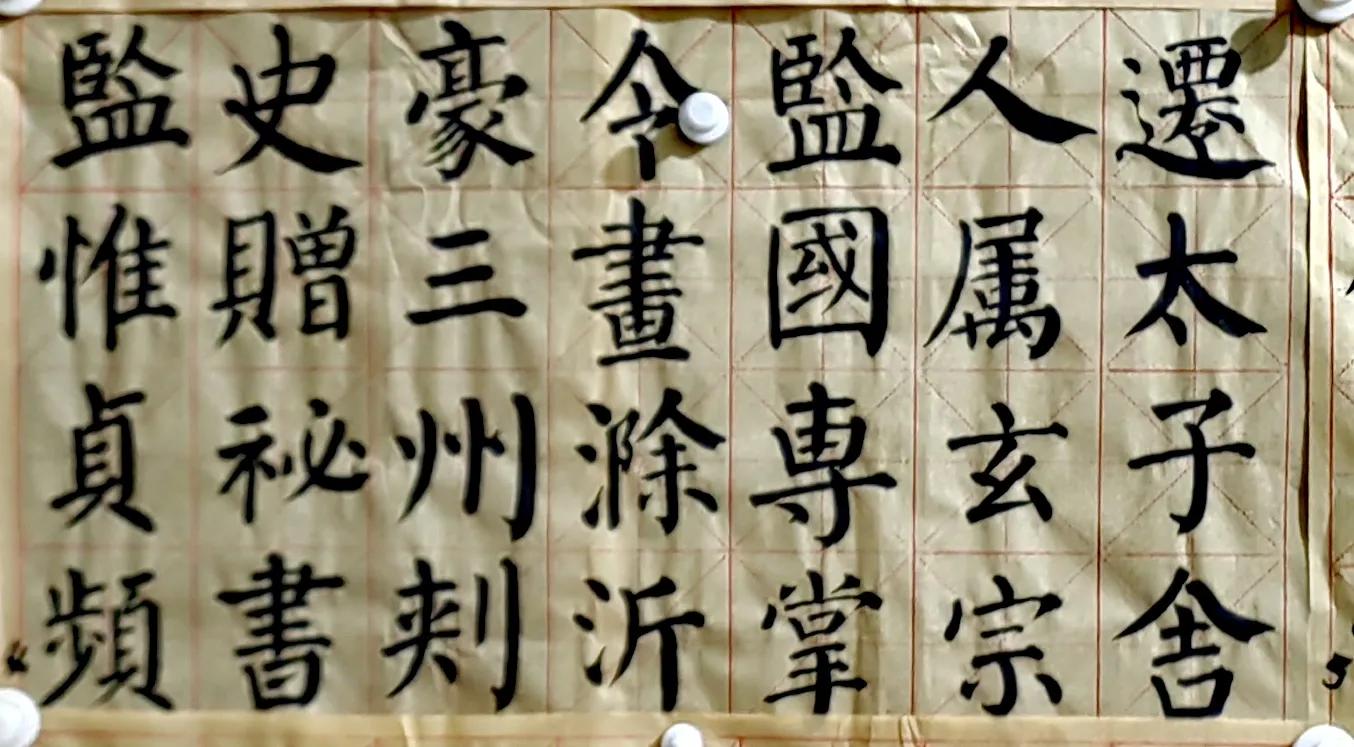 遷太子舍
人属玄宗
監國専掌
令畫滁沂
豪三州刾
史贈祕書
監惟貞頻